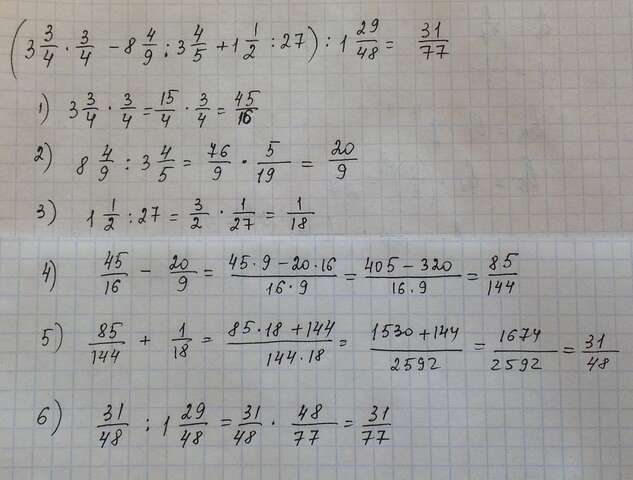 (3 3/4 · 3/4 - 8 4/9 : 3 4/5 + 1 1/2 : 27) : 1 29/48 = 31/77
1) 3 3/4 · 3/4 = 15/4 · 3/4 = 45/16
2) 8 4/9 : 3 4/5 = 76/9 · 5/19 = 20/9
3) 1 1/2 : 27 = 3/2 · 1/27 = 1/18
4) 45/16 - 20/9 = 45·9-20·16/16·9 = 405-320/16.9 = 85/144
5) 85/144 + 1/18 = 85·18+144/144·18 = 1530+144/2592 = 1674/2592 = 31/48
6) 31/48 : 1 29/48 = 31/48 · 48/77 = 31/77